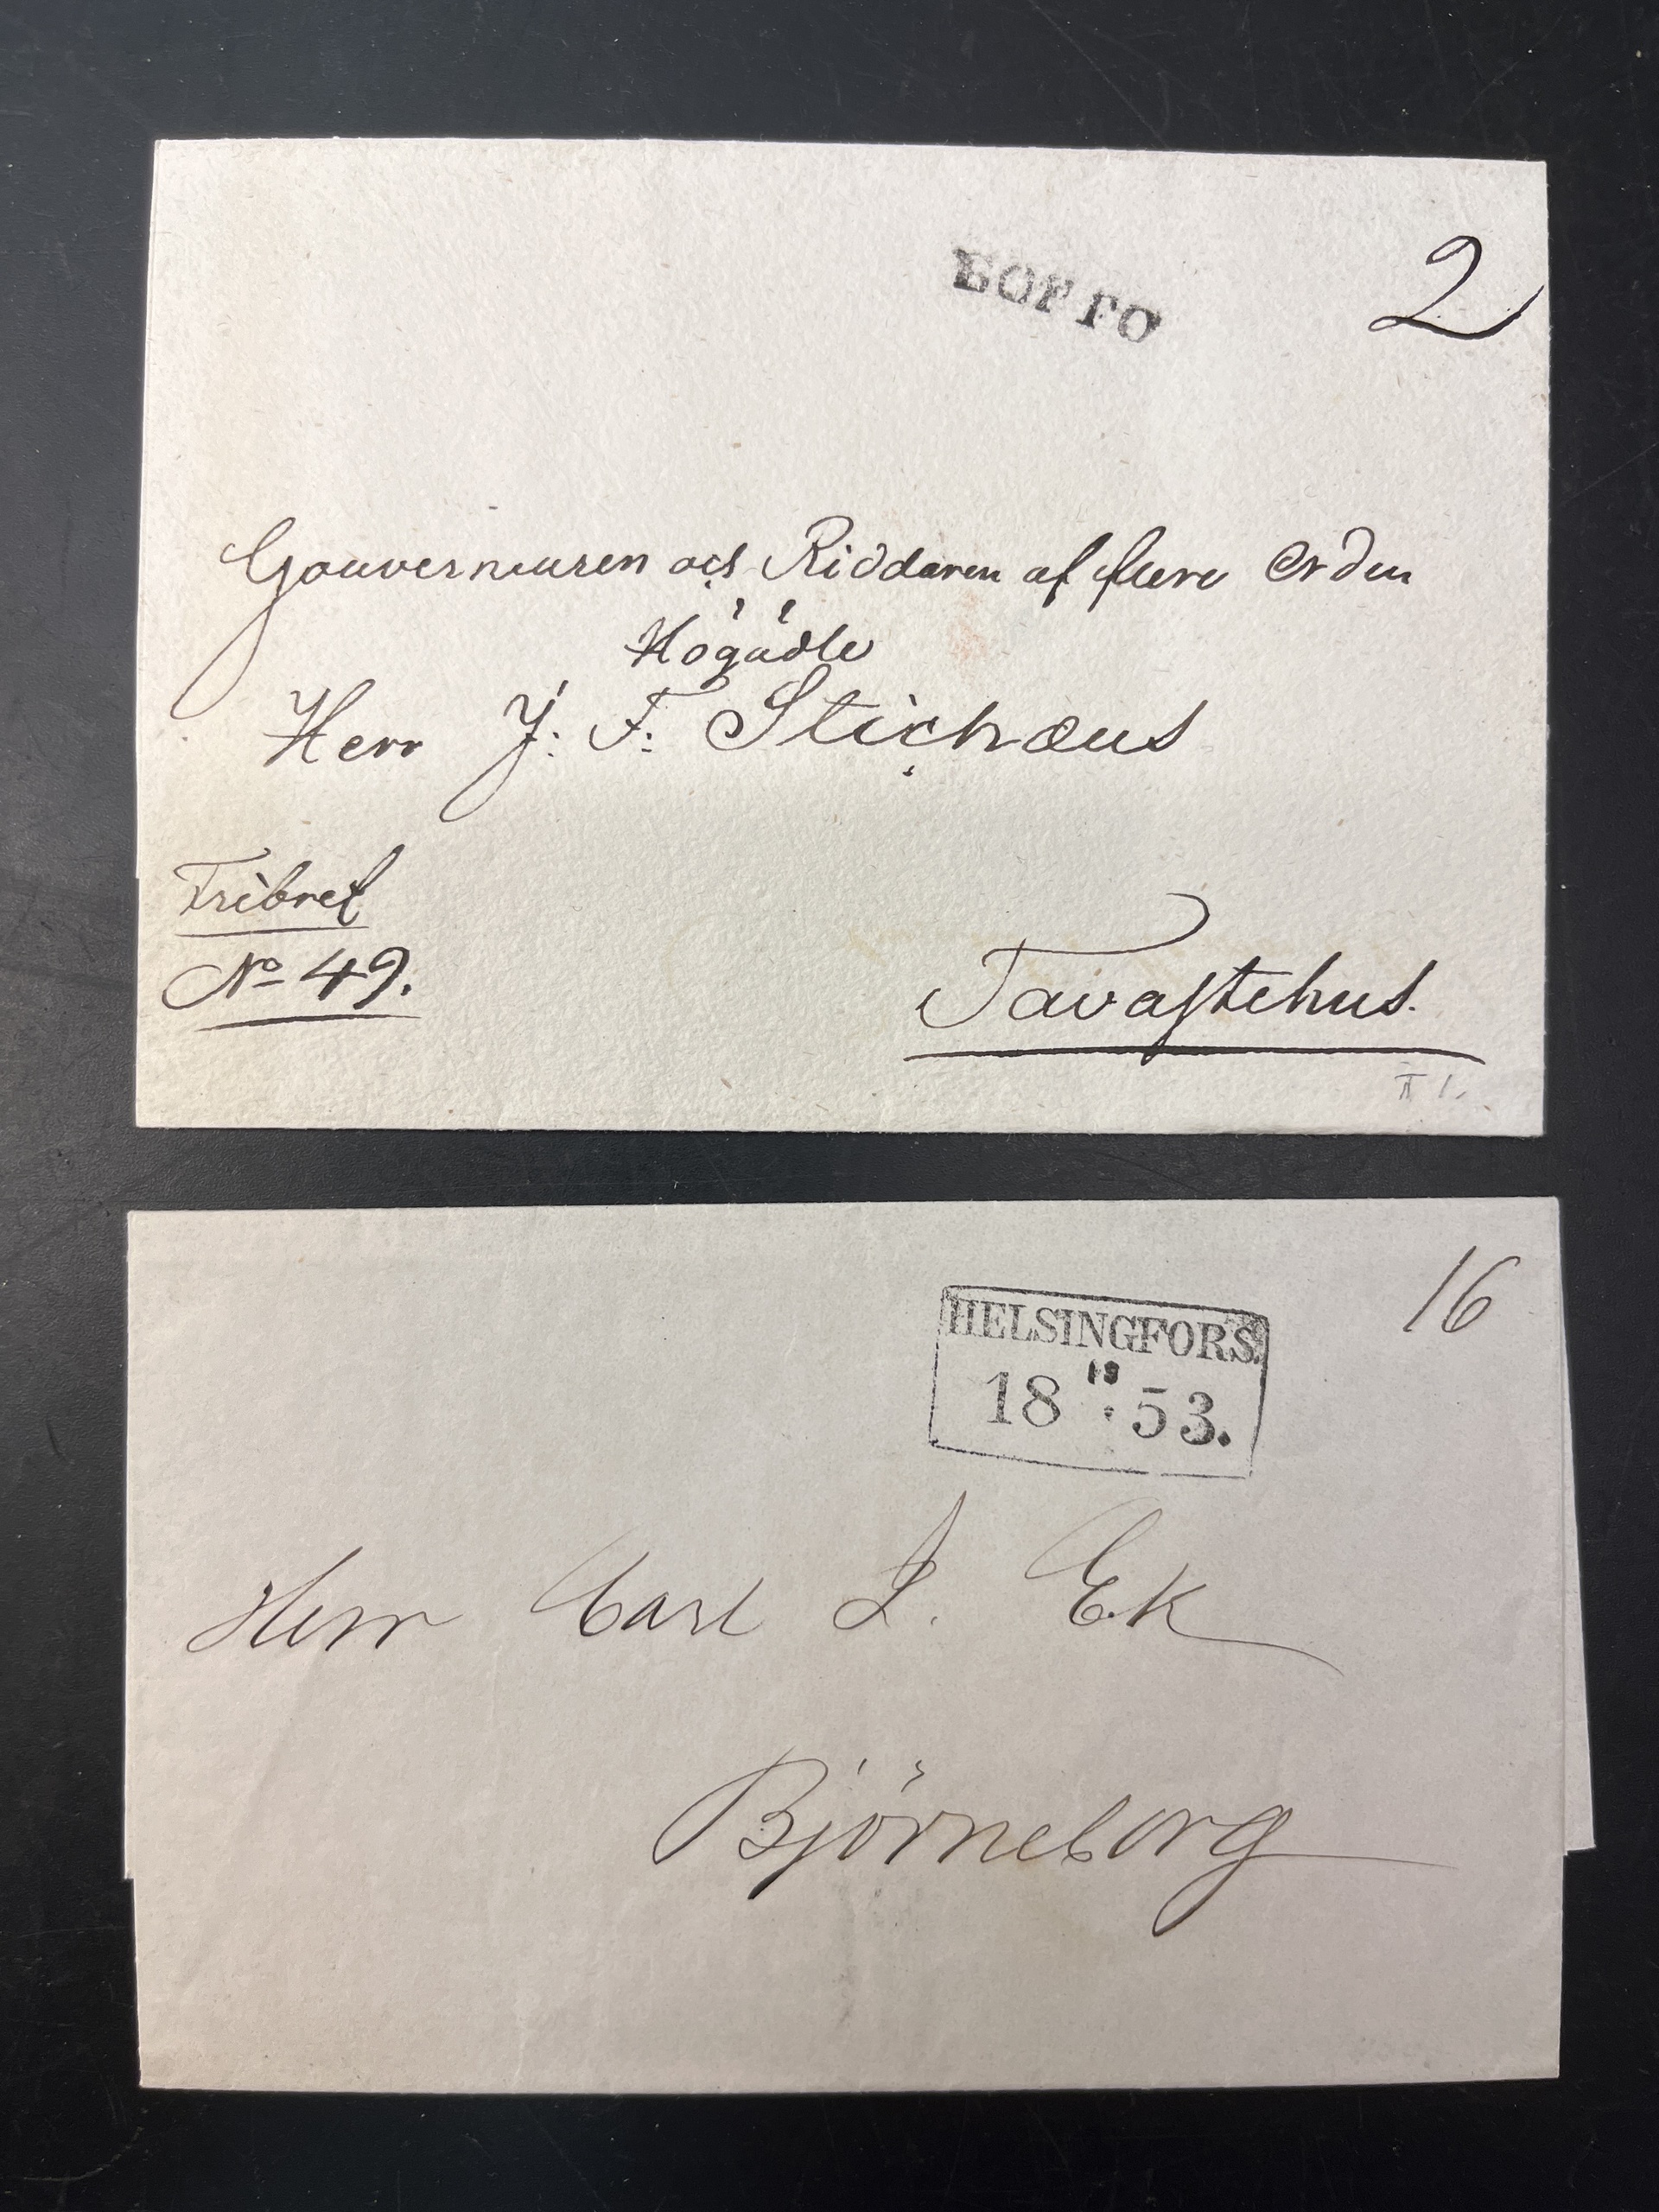 BORGO
2
Gouverneuren och Riddaren af flere Orden
Högädle
Herr J: F: Stichæus
Fribref
No 49.
Tavastehus.
II 1.
HELSINGFORS.
18 53.
16
Herr Carl J. Ek
Björneborg